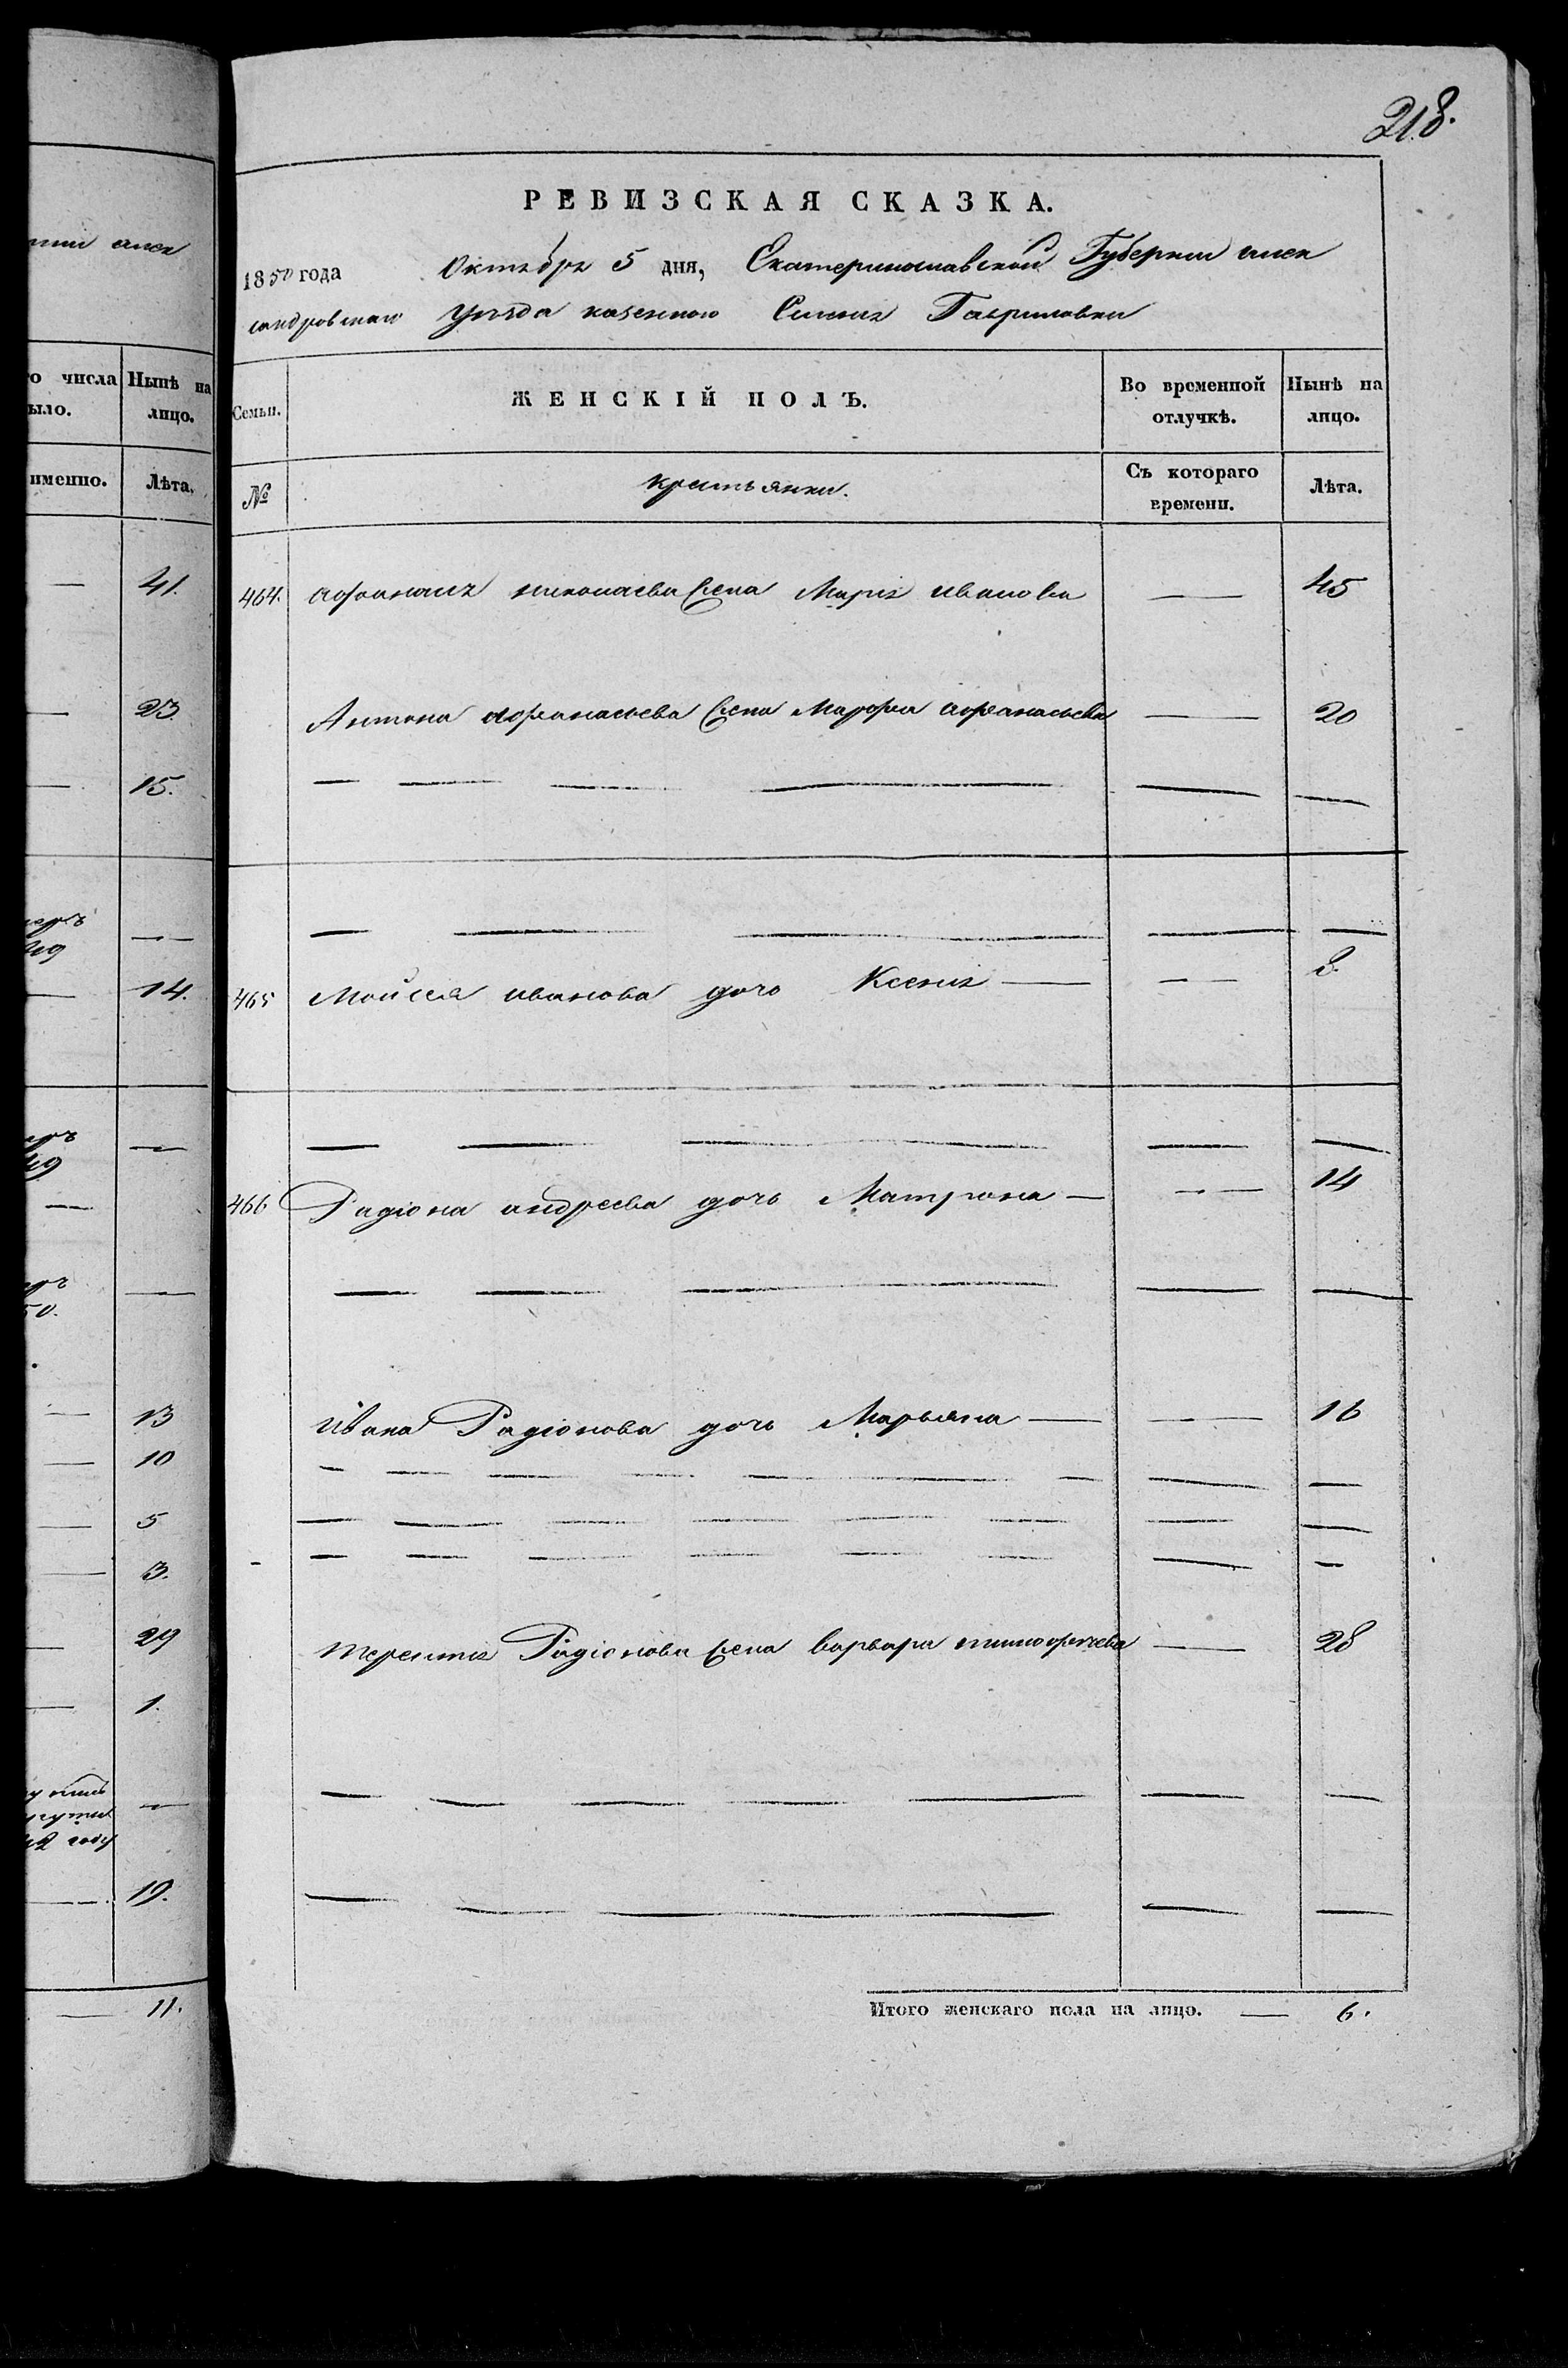 218.
РЕВИЗСКАЯ СКАЗКА.
1850 года Октября 5 дня, Екатеринославской Губернии алек
сандровскаго уезда казенного Селения Гавриловки
Семьи. ЖЕНСКІЙ ПОЛЪ. Во временной отлучкѣ. Нынѣ на лицо.
№ крестьянки. Съ котораго времени. Лѣта.
464. афанасия николаева жена Мария иванова — 45
Антона афанасьева жена Марфа афанасьева — 20
465 Мойсея иванова дочь Ксения — — 8.
466 Радіона андреева дочь Матрона — — 14
ивана Радіонова дочь Марьяна — — 16
терентия Радіонова жена варвара тимофеева — 28
Итого женскаго пола на лицо. — 6.
числа
ыло.
Нынѣ на
лицо.
именно. Лѣта.
— 41.
— 23
— 15.
49 —
— 14.
49 —
—
50. —
— 13
— 10
— 5
— 3.
— 29
— 1.
42 году —
— 19.
— 11.